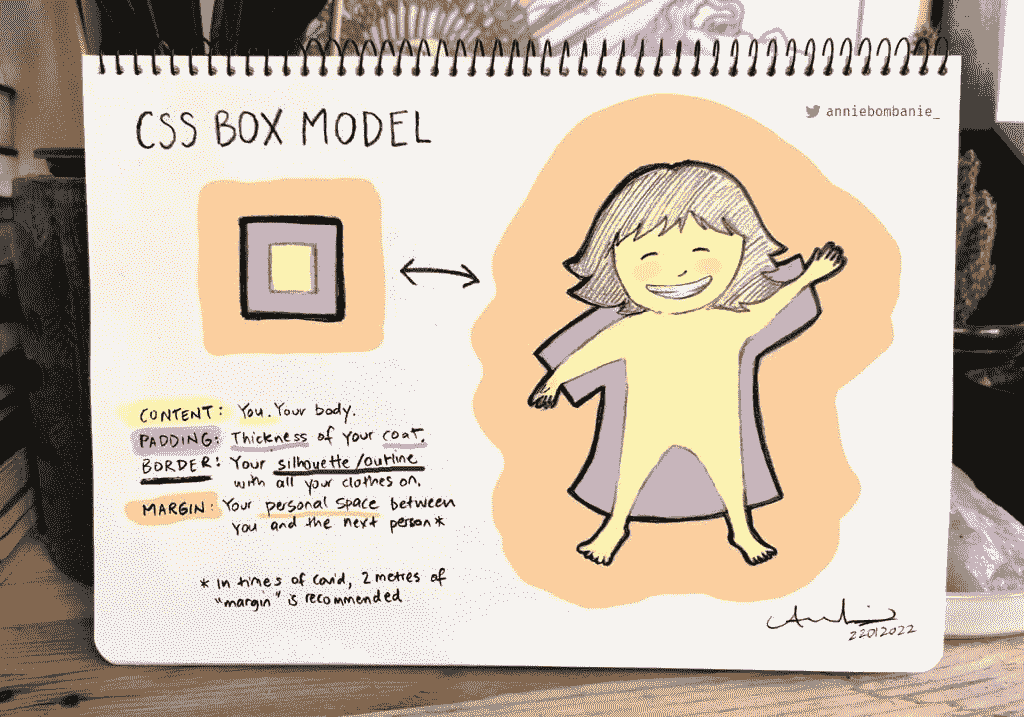 CSS BOX MODEL
anniebombanie_
CONTENT: You. Your body.
PADDING: Thickness of your coat.
BORDER: Your silhouette/outline
with all your clothes on.
MARGIN: Your personal space between
you and the next person*
* In times of covid, 2 metres of
"margin" is recommended
22012022